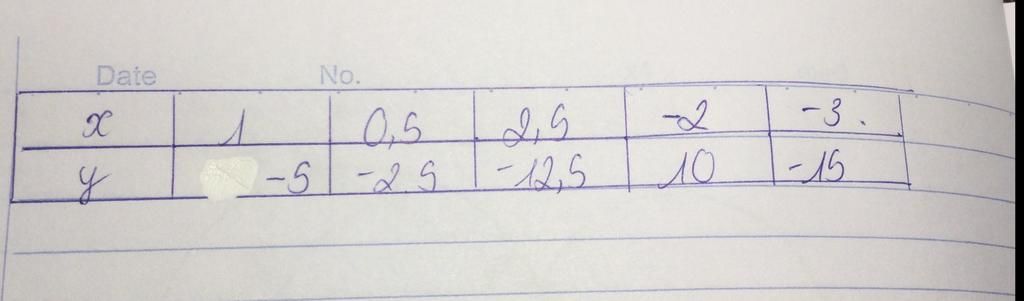 Date No.
x 1 0,5 2,5 -2 -3.
y -5 -2 5 -12,5 10 -15